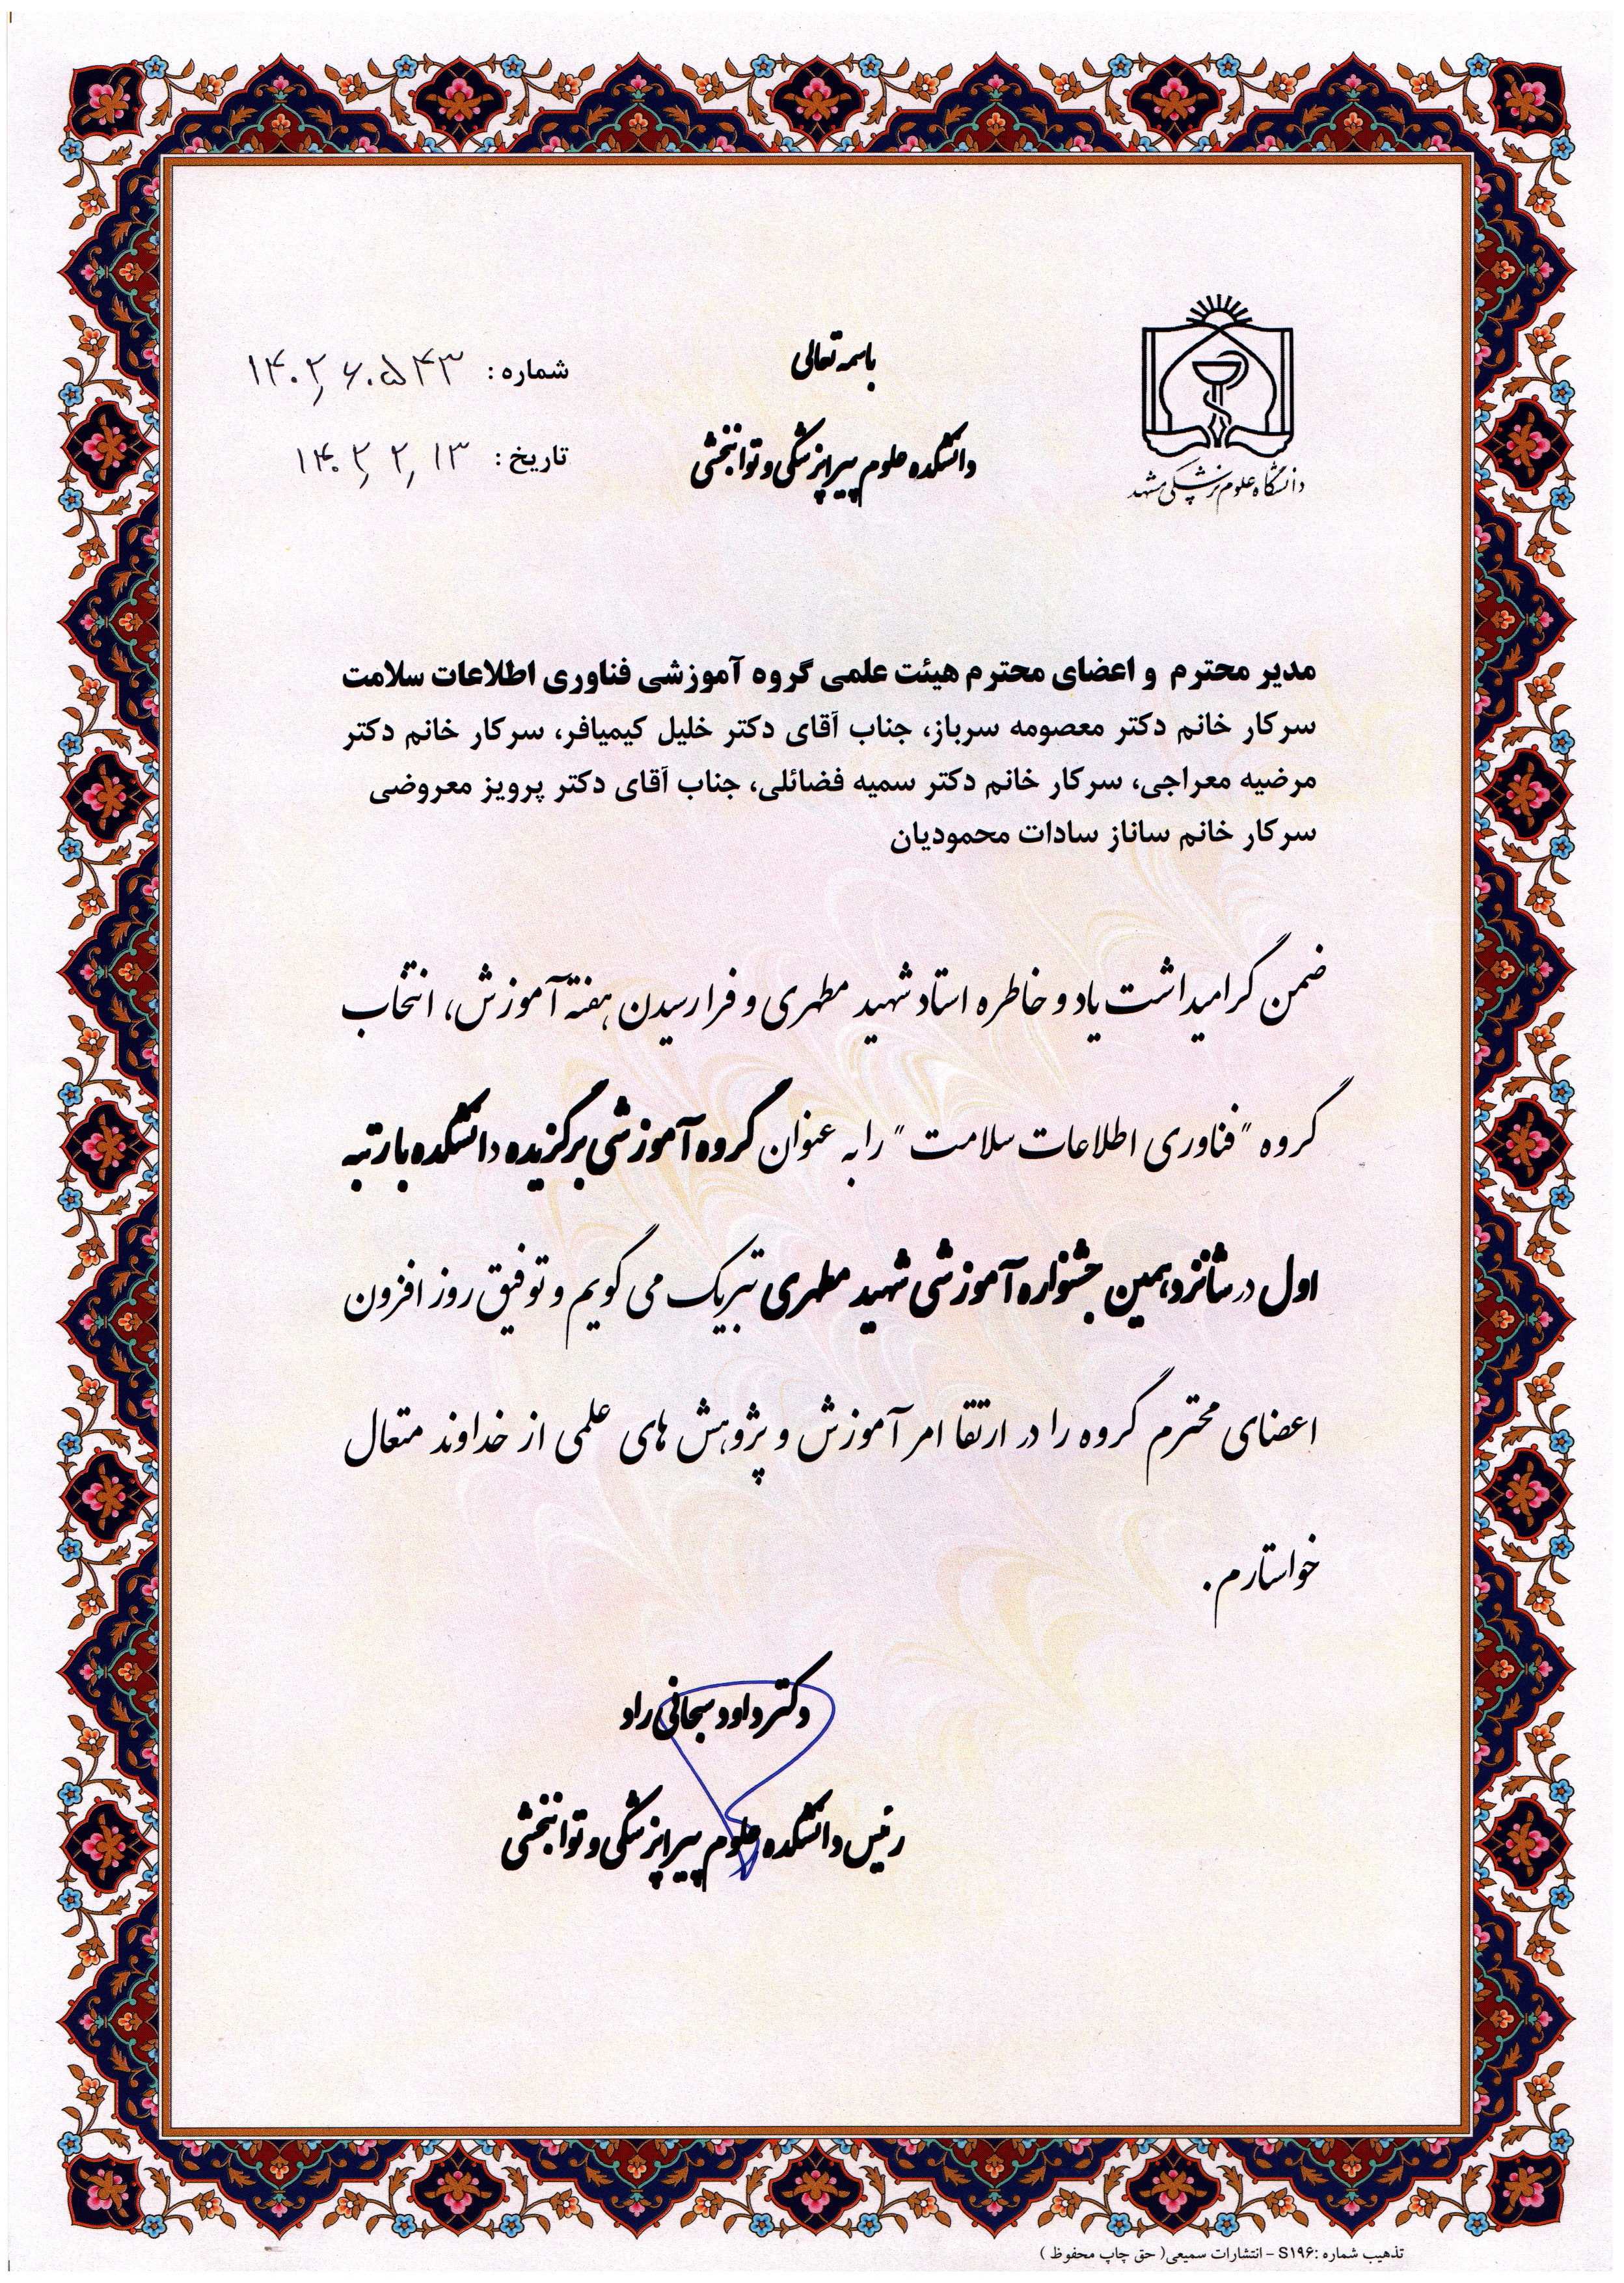 باسمه تعالی
دانشکده علوم پیراپزشکی و توانبخشی
دانشگاه علوم پزشکی مشهد
شماره : ۱۴۰۲٫۶۰۵۴۳
تاریخ : ۱۴۰۲٫۲٫۱۳
مدیر محترم و اعضای محترم هیئت علمی گروه آموزشی فناوری اطلاعات سلامت
سرکار خانم دکتر معصومه سرباز، جناب آقای دکتر خلیل کیمیافر، سرکار خانم دکتر
مرضیه معراجی، سرکار خانم دکتر سمیه فضائلی، جناب آقای دکتر پرویز معروضی
سرکار خانم ساناز سادات محمودیان
ضمن گرامیداشت یاد و خاطره استاد شهید مطهری و فرا رسیدن هفته آموزش، انتخاب
گروه "فناوری اطلاعات سلامت" را به عنوان گروه آموزشی برگزیده دانشکده با رتبه
اول در شانزدهمین جشنواره آموزشی شهید مطهری تبریک می گویم و توفیق روز افزون
اعضای محترم گروه را در ارتقا امر آموزش و پژوهش های علمی از خداوند متعال
خواستارم.
دکتر داود سبحانی راد
رئیس دانشکده علوم پیراپزشکی و توانبخشی
تذهیب شماره :S۱۹۶ - انتشارات سمیعی( حق چاپ محفوظ )